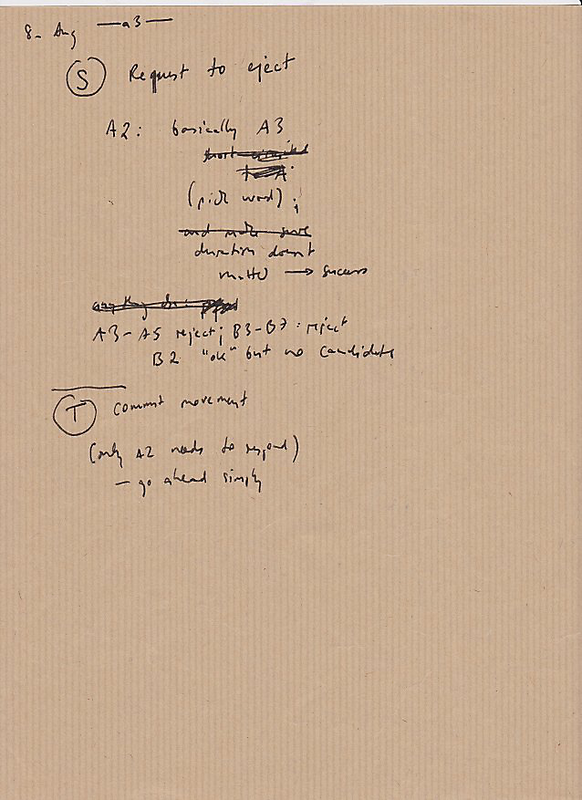 8- Aug —a3—
S Request to eject
A2: basically A3
(pick word);
and make sure
duration doesnt
matter → success
A3-A5 reject; B3-B7: reject
B2 "ok" but no candidate
T Commit movement
(only A2 needs to respond)
– go ahead simply